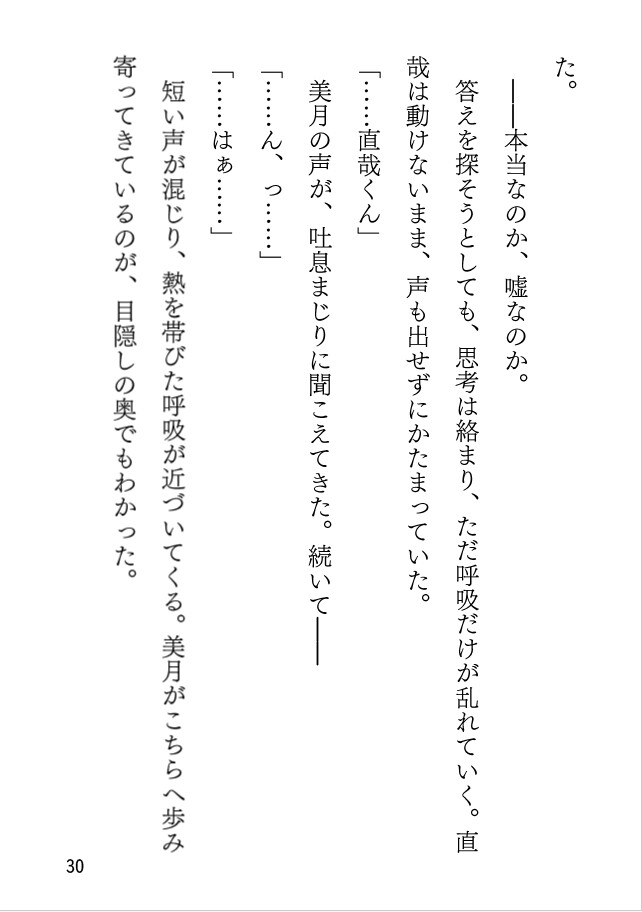 た。
　――本当なのか、嘘なのか。
　答えを探そうとしても、思考は絡まり、ただ呼吸だけが乱れていく。直
哉は動けないまま、声も出せずにかたまっていた。
「……直哉くん」
　美月の声が、吐息まじりに聞こえてきた。続いて――
「……ん、っ……」
「……はぁ……」
　短い声が混じり、熱を帯びた呼吸が近づいてくる。美月がこちらへ歩み
寄ってきているのが、目隠しの奥でもわかった。
30